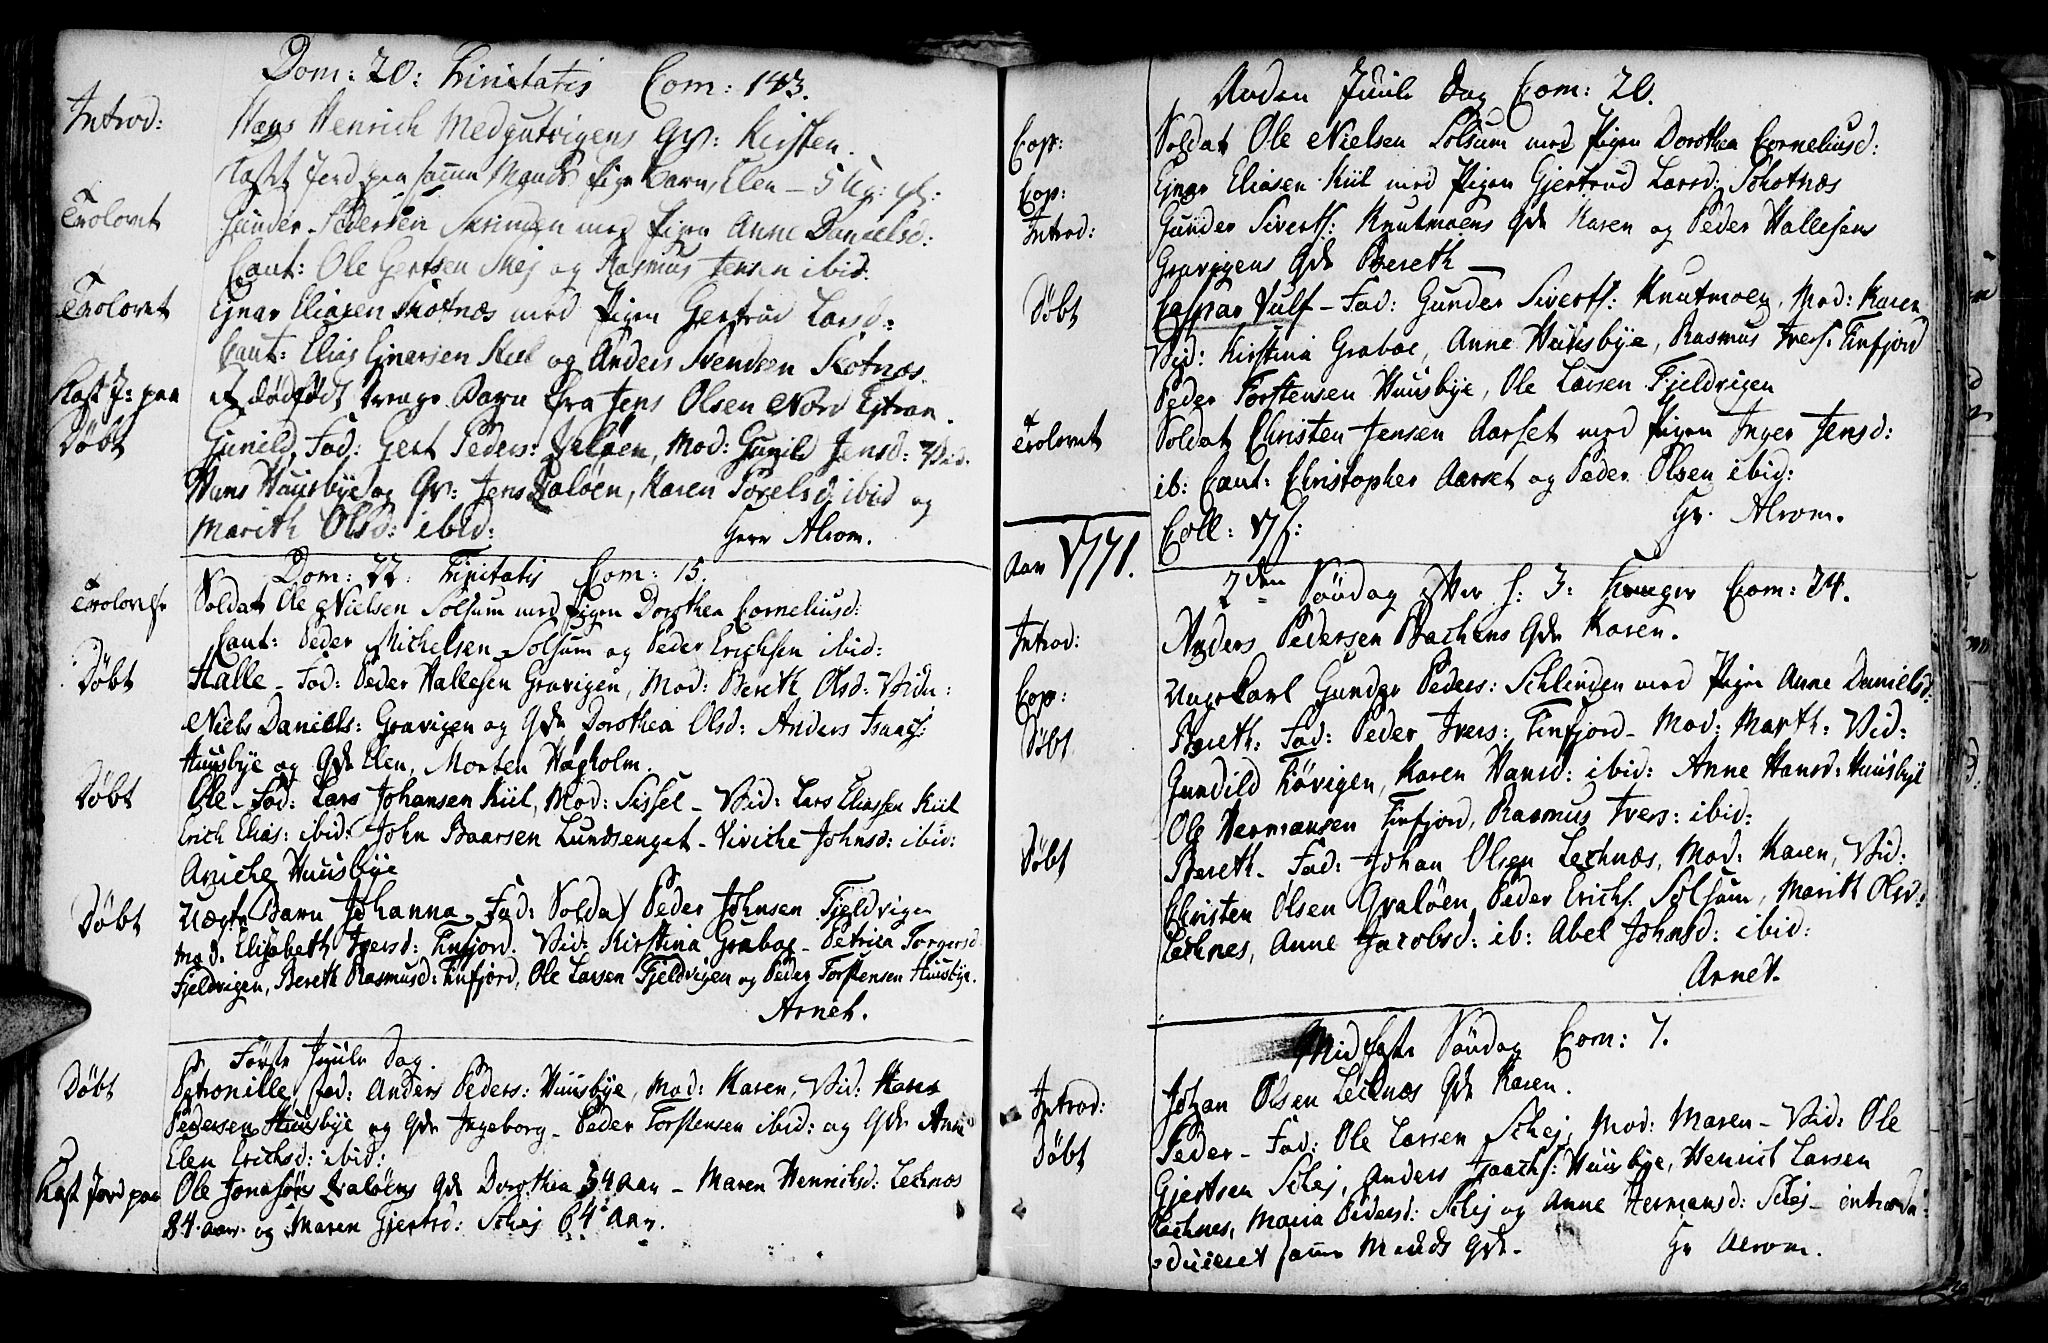 Dom: 20: Trinitatis Com: 143.
Introd: Hans Henrich Medgutvigens Qv: Kirsten.
Kastet Jord paa samme Mands Pige Barn, Elen - 5 Ug: gl:
Trolovet Gunder Pedersen med Pigen Anne Danielsd:
Caut: Ole Gertsen Skej og Rasmus Jensen ibid:
Trolovet Ejnar Eliasen Skotnæs med Pigen Gertrud Larsd:
Caut: Elias Einersen Kiil og Anders Svendsen Skotnæs.
Kast J: paa et dødfødt Drenge Barn fra Jens Olsen Nord Ejtran.
Døbt Gunild, Fad: Gert Peders: Qvaløen, Mod: Gunild Jensd: Vid:
Hans Huusbye og Qv: Jens Qvaløen, Karen Povelsd ibid og
Marith Olsd: ibid: Herr Alrom.
Dom: 22: Trinitatis Com: 15.
Trolovelse Soldat Ole Nielsen Solsum med Pigen Dorothea Corneliusd:
Caut: Peder Michelsen Solsum og Peder Erichsen ibid:
Døbt Halle - Fad: Peder Hallesen Gravigen, Mod: Bereth Olsd: Vidn:
Niels Daniels: Gravigen og Qde Dorothea Olsd: Anders Isaachs:
Huusbye og Qde Elen, Morten Høgholm.
Døbt Ole - Fad: Lars Johansen Kiil, Mod: Sissel - Vid: Lars Eliassen Kiil
Erich Elias: ibid: John Baarsen Lundsenget - Viviche Johnsd: ibid:
Aniche Huusbye
Døbt Uægte Barn Johanna, Fad: Soldat Peder Johnsen Fjeldvigen
Mod. Elisabeth Iversd: Finfjord. Vid: Kirstina Graboe - Petrica Torgersd
Fjeldvigen, Bereth Rasmusd: Finfjord, Ole Larsen Fjeldvigen og Peder Torstensen Huusbye.
Arnet.
Første Juule Dag.
Døbt Petronille, Fad: Anders Peders: Huusbye, Mod: Karen, Vid: Hans
Pedersen Huusbye og Qde Ingeborg - Peder Torstensen ibid: og Qde Anne
Elen Erichsd: ibid:
Kast Jord paa Ole Jonasøns Qvaløens Qde Dorothea 54 aar - Maren Henrichsd: Lechnæs
84 aar. og Maren Gjertsd: Schej 64 aar.
Anden Juule Dag Com: 20.
Cop: Soldat Ole Nielsen Solsum med Pigen Dorothea Corneliusd:
Cop: Ejnar Eliasen Kiil med Pigen Gjertrud Larsd: Schotnæs
Introd: Gunder Siverts: Knutmoens Qde Karen og Peder Hallesens
Gravigens Qde Bereth -
Døbt Caspar Vulf - Fad: Gunder Siverts: Knutmoen, Mod: Karen
Vid: Kirstina Graboe, Anne Huusbye, Rasmus Ivers: Finfjord
Peder Torstensen Huusbye, Ole Larsen Fjeldvigen
Trolovet Soldat Christen Jensen Aarset med Pigen Inger Jensd:
ib: Caut: Christopher Aarset og Peder Olsen ibid:
Coll: Hr. Alrom.
Aar 1771.
2den Søndag efter h: 3: Konger Com: 24.
Introd: Anders Pedersen Bachens Qde Karen.
Cop: Ungekarl Gunder Peders: Schlinden med Pigen Anne Danielsd:
Døbt Bereth: Fad: Peder Ivers: Finfjord - Mod: Marth: Vid:
Gunild Løvigen, Karen Hansd: ibid: Anne Hansd: Huusbye
Ole Hermansen Finfjord, Rasmus Ivers: ibid:
Døbt Bereth - Fad: Johan Olsen Lechnæs, Mod: Karen, Vid:
Christen Olsen Qvaløen, Peder Erichs: Solsum, Marith Olsd:
Lechnes, Anne Jacobsd: ib: Abel Johnsd: ibid:
Arnet.
Midfaste Søndag Com: 7.
Introd: Johan Olsen Lechnæs Qde Karen.
Døbt Peder - Fad: Ole Larsen Schej, Mod: Maren - Vid: Ole
Gjertsen Schej, Anders Isaachs: Huusbye, Henrik Larsen
Lechnes, Maria Pedersd: Schej og Anne Hermansd: Schej -
duceret samme Mands Qde. Hr Alrom.